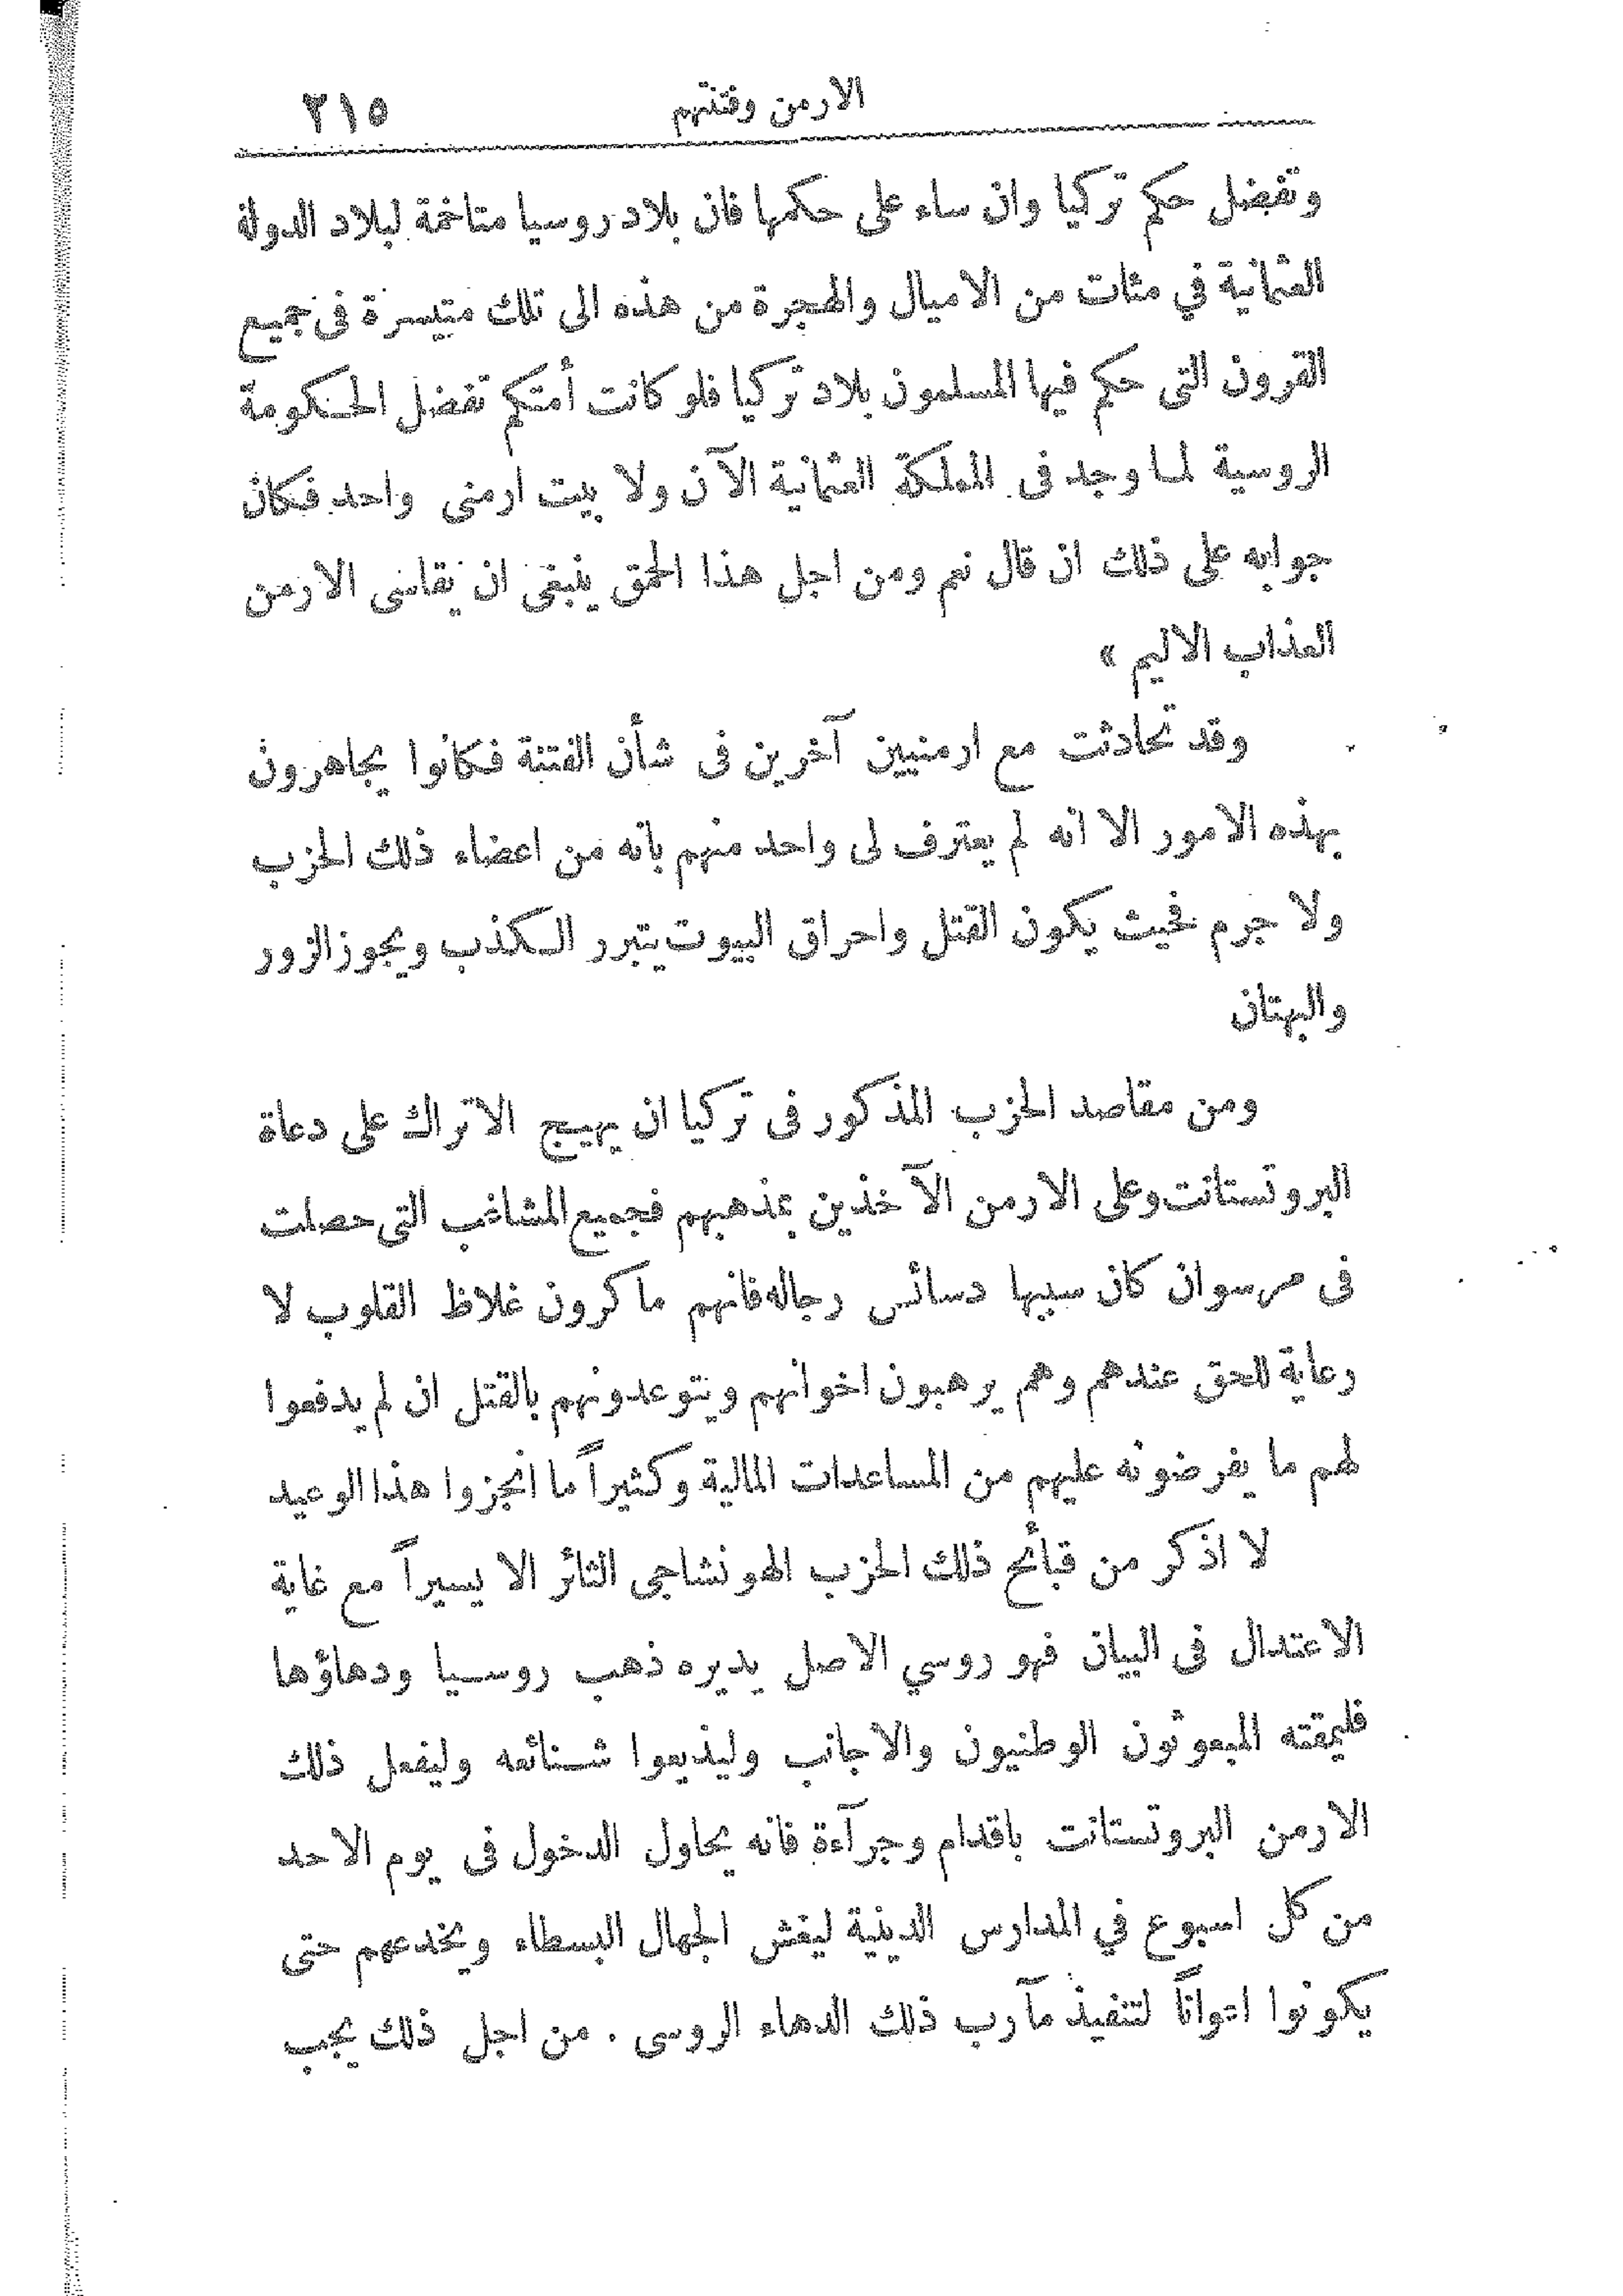 الارمن وفتنتهم ٢١٥
وتفضل حكم تركيا وان ساء على حكمها فان بلاد روسيا متاخمة لبلاد الدولة
العثمانية في مئات من الاميال والهجرة من هذه الى تلك متيسرة فى جميع
القرون التى حكم فيها المسلمون بلاد تركيا فلو كانت أمتكم تفضل الحكومة
الروسية لما وجد فى المملكة العثمانية الآن ولا بيت ارمنى واحد فكان
جوابه على ذلك ان قال نعم ومن اجل هذا الحمق ينبغى ان يقاسى الارمن
العذاب الاليم »
وقد تحادثت مع ارمنيين آخرين فى شأن الفتنة فكانوا يجاهرون
بهذه الامور الا انه لم يعترف لى واحد منهم بانه من اعضاء ذلك الحزب
ولا جرم فحيث يكون القتل واحراق البيوت يتبرر الكذب ويجوز الزور
والبهتان
ومن مقاصد الحزب المذكور فى تركيا ان يهيج الاتراك على دعاة
البروتستانت وعلى الارمن الآخذين بمذهبهم فجميع المشاغب التى حصلت
فى مرسوان كان سببها دسائس رجاله فانهم ماكرون غلاظ القلوب لا
رعاية للحق عندهم وهم يرهبون اخوانهم ويتوعدونهم بالقتل ان لم يدفعوا
لهم ما يفرضونه عليهم من المساعدات المالية وكثيراً ما انجزوا هذا الوعيد
لا اذكر من قبائح ذلك الحزب الهونشاجى الثائر الا يسيراً مع غاية
الاعتدال فى البيان فهو روسي الاصل يديره ذهب روسيا ودهاؤها
فليمقته المبعوثون الوطنيون والاجانب وليذيعوا شنائعه وليفعل ذلك
الارمن البروتستانت باقدام وجرآءة فانه يحاول الدخول فى يوم الاحد
من كل اسبوع في المدارس الدينية ليغش الجهال البسطاء ويخدعهم حتى
يكونوا اعواناً لتنفيذ مآرب ذلك الدهاء الروسى . من اجل ذلك يجب